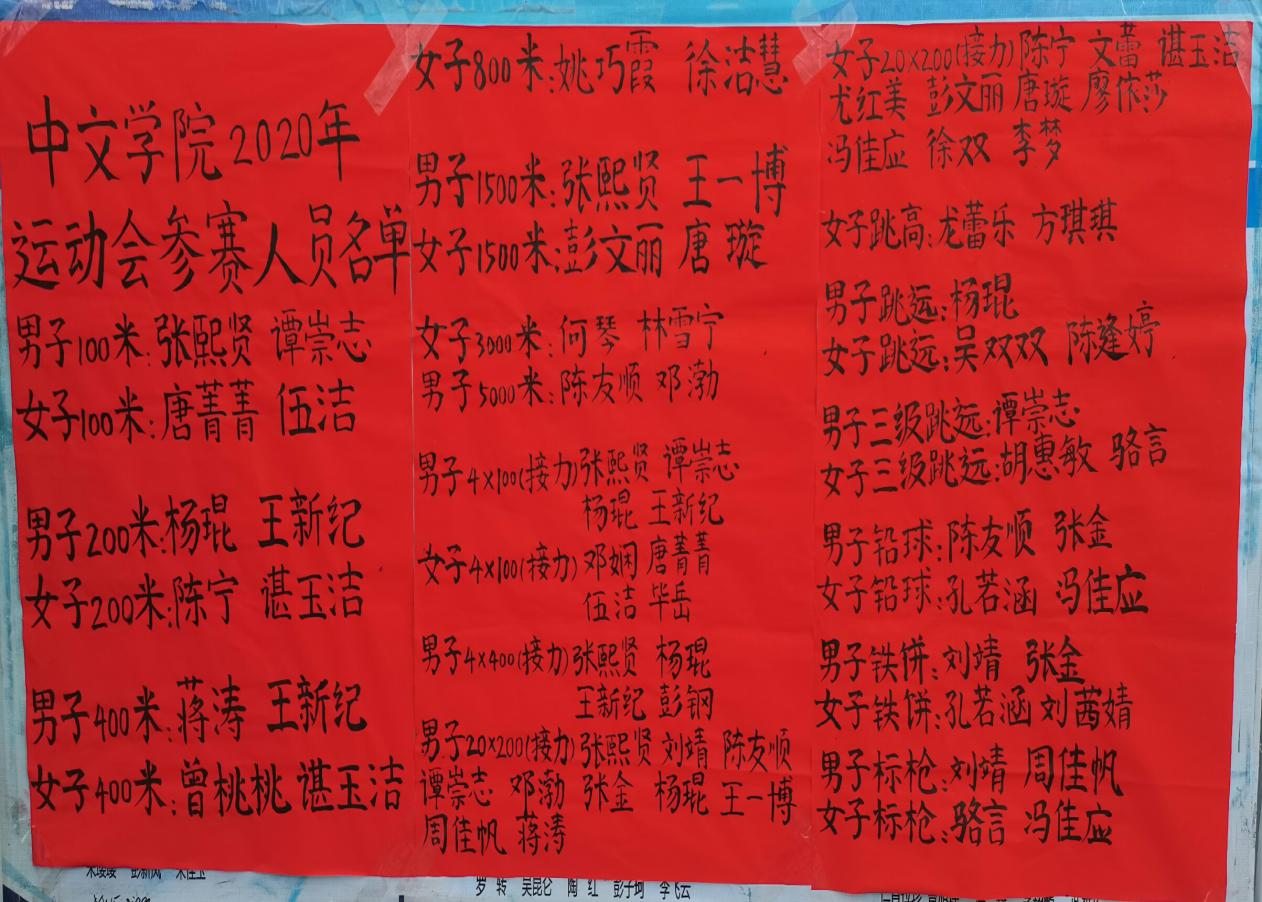 中文学院2020年
运动会参赛人员名单
男子100米:张熙贤 谭崇志
女子100米:唐菁菁 伍洁
男子200米:杨琨 王新纪
女子200米:陈宁 谌玉洁
男子400米:蒋涛 王新纪
女子400米:曾桃桃 谌玉洁
女子800米:姚巧霞 徐洁慧
男子1500米:张熙贤 王一博
女子1500米:彭文丽 唐璇
女子3000米:何琴 林雪宁
男子5000米:陈友顺 邓渤
男子4×100(接力)张熙贤 谭崇志
杨琨 王新纪
女子4×100(接力)邓娴 唐菁菁
伍洁 毕岳
男子4×400(接力)张熙贤 杨琨
王新纪 彭钢
男子20×200(接力)张熙贤 刘靖 陈友顺
谭崇志 邓渤 张金 杨琨 王一博
周佳帆 蒋涛
女子20×200(接力)陈宁 文蕾 谌玉洁
尤红美 彭文丽 唐璇 廖依莎
冯佳应 徐双 李梦
女子跳高:龙蕾乐 方琪琪
男子跳远:杨琨
女子跳远:吴双双 陈逢婷
男子三级跳远:谭崇志
女子三级跳远:胡惠敏 骆言
男子铅球:陈友顺 张金
女子铅球:孔若涵 冯佳应
男子铁饼:刘靖 张金
女子铁饼:孔若涵 刘茜婧
男子标枪:刘靖 周佳帆
女子标枪:骆言 冯佳应
罗转 吴昆仑 陶红 彭子珂 李飞云